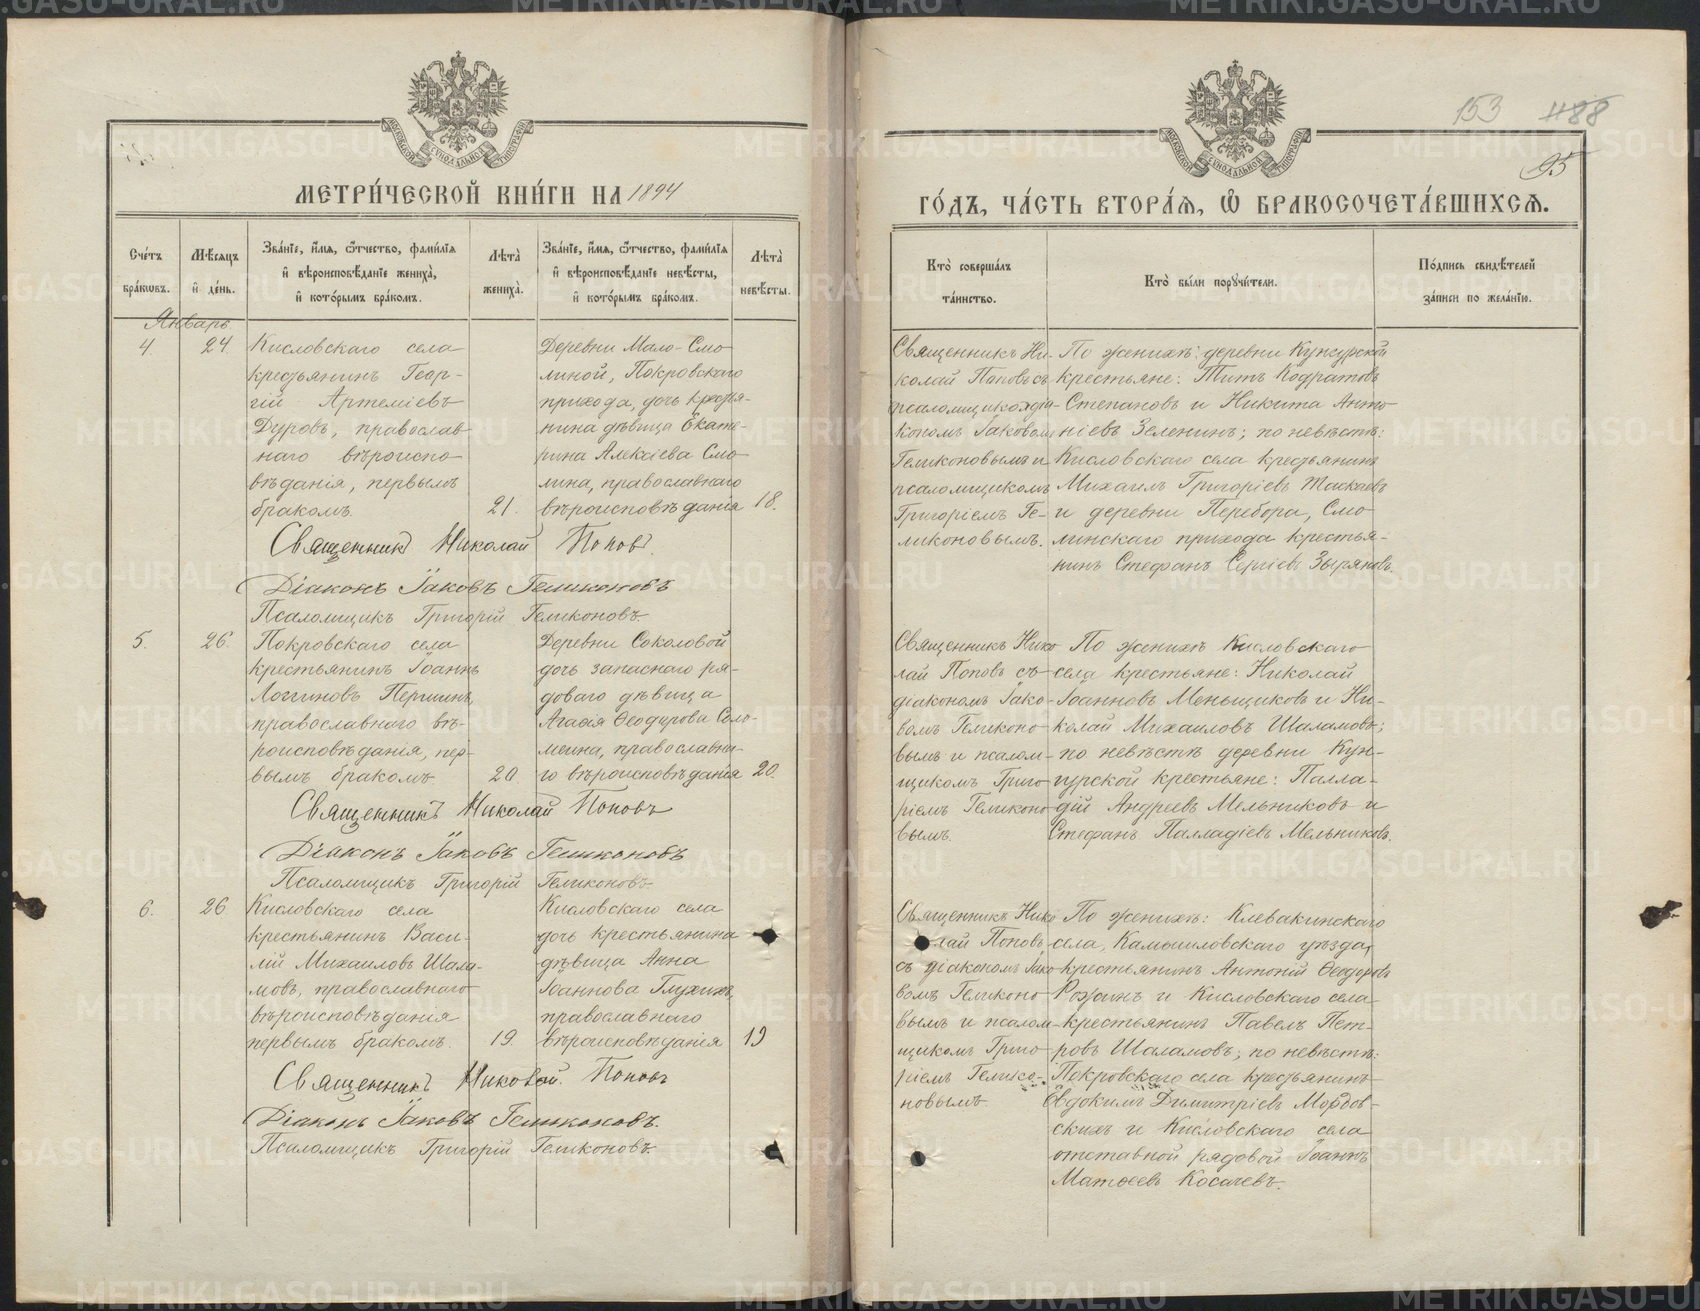 153 1188
95
МОСКОВСКОЙ СѴНОДАЛЬНОЙ ТИПОГРАФІИ
МЕТРИ́ЧЕСКОЙ КНИ́ГИ НА 1894
Сче́тъ бра́кωвъ.
Мѣ́сяцъ и҆ де́нь.
Зва́нїе, и҆́мя, ѻ҆́тчество, фами́лїя
и҆ вѣроисповѣ́данїе жениха̀,
и҆ кото́рымъ бра́комъ.
Лѣта̀ жениха̀.
Зва́нїе, и҆́мя, ѻ҆́тчество, фами́лїя
и҆ вѣроисповѣ́данїе невѣ́сты,
и҆ кото́рымъ бра́комъ.
Лѣта̀ невѣ́сты.
Январь.
4. 24.
Кисловскаго села
крестьянинъ Геор-
гій Артеміевъ
Дуровъ, православ
наго вѣроиспо
вѣданія, первымъ
бракомъ. 21.
Деревни Мало-Смо
линой, Покровскаго
прихода, дочь крестья-
нина дѣвица Екате-
рина Алексіева Смо
лина, православнаго
вѣроисповѣданія 18.
Священникъ Николай Поповъ.
Діаконъ Іаковъ Геликоновъ
Псаломщикъ Григорій Геликоновъ.
5. 26.
Покровскаго села
крестьянинъ Іоаннъ
Логгиновъ Першинъ,
православнаго вѣ-
роисповѣданія, пер-
вымъ бракомъ 20.
Деревни Соколовой
дочь запаснаго ря-
доваго дѣвица
Агафія Ѳеодорова Соло-
меина, православна-
го вѣроисповѣданія 20.
Священникъ Николай Поповъ
Діаконъ Іаковъ Геликоновъ
Псаломщикъ Григорій Геликоновъ
6. 26.
Кисловскаго села
крестьянинъ Васи-
лій Михаиловъ Шала-
мовъ, православнаго
вѣроисповѣданія
первымъ бракомъ. 19.
Кисловскаго села
дочь крестьянина
дѣвица Анна
Іоаннова Глухихъ,
православнаго
вѣроисповѣданія 19
Священникъ Николай Поповъ
Діаконъ Іаковъ Геликоновъ.
Псаломщикъ Григорій Геликоновъ
МОСКОВСКОЙ СѴНОДАЛЬНОЙ ТИПОГРАФІИ
ГО́ДЪ, ЧА́СТЬ ВТОРА́Я, Ѽ БРАКОСОЧЕТА́ВШИХСЯ.
Кто̀ соверша́лъ
та́инство.
Кто̀ бы́ли порꙋчи́тели.
По́дпись свидѣ́телей
за́писи по жела́нїю.
Священникъ Ни-
колай Поповъ съ
псаломщикомъ діа-
кономъ Іаковомъ
Геликоновымъ и
псаломщикомъ
Григоріемъ Ге-
ликоновымъ.
По женихѣ: деревни Кунгурской
крестьяне: Титъ Кодратовъ
Степановъ и Никита Анто
ніевъ Зеленинъ; по невѣстѣ:
Кисловскаго села крестьянинъ
Михаилъ Григоріевъ Таскаевъ
и деревни Перебора, Смо
линскаго прихода крестья-
нинъ Стефанъ Сергіевъ Зыряновъ.
Священникъ Нико
лай Поповъ съ
діакономъ Іако-
вомъ Геликоно-
вымъ и псалом-
щикомъ Григо-
ріемъ Геликоно
вымъ.
По женихѣ Кисловскаго
села крестьяне: Николай
Іоанновъ Меньщиковъ и Ни-
колай Михаиловъ Шаламовъ;
по невѣстѣ деревни Кун-
гурской крестьяне: Палла-
дій Андреевъ Мельниковъ и
Стефанъ Палладіевъ Мельниковъ.
Священникъ Нико
лай Поповъ
съ діакономъ Іако
вомъ Геликоно-
вымъ и псалом-
щикомъ Григо-
ріемъ Гелико-
новымъ
По женихѣ: Клевакинскаго
села, Камышловскаго уѣзда,
крестьянинъ Антоній Ѳеодоровъ
Рожинъ и Кисловскаго села
крестьянинъ Павелъ Пет-
ровъ Шаламовъ; по невѣстѣ:
Покровскаго села крестьянинъ
Евдокимъ Димитріевъ Мордов-
скихъ и Кисловскаго села
отставной рядовой Іоаннъ
Матѳеевъ Косачевъ.
METRIKI.GASO-URAL.RU